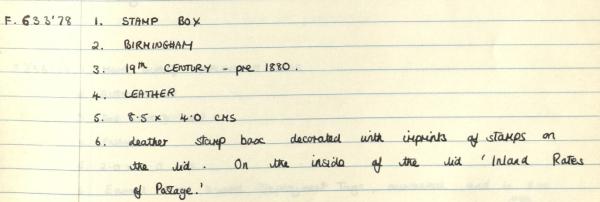 F. 633'78 1. STAMP BOX
2. BIRMINGHAM
3. 19th CENTURY - pre 1880.
4. LEATHER
5. 8.5 x 4.0 CMS
6. Leather stamp box decorated with imprints of stamps on
the lid. On the inside of the lid 'Inland Rates
of Postage.'